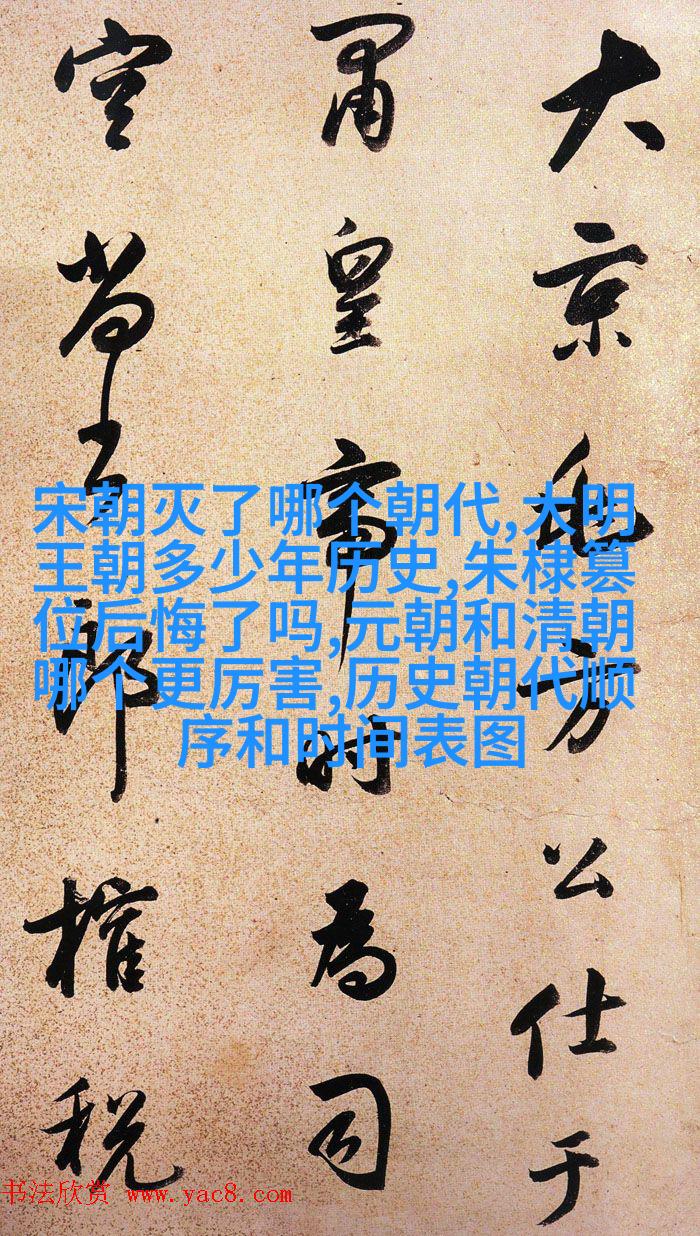 大京兆方公仕于
肅皇帝时為司
空尚书郎榷税
宋朝灭了哪个朝代,大明
王朝多少年历史,朱棣篡
位后悔了吗,元朝和清朝
哪个更厉害,历史朝代顺
序和时间表图
书法欣赏 www.yac8.com